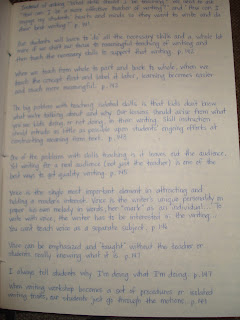 Instead of asking, "What skills should I be teaching?" we need to ask
"How can I be a more effective teacher of writing?" and "How can I
engage my students' hearts and minds so they want to write and do
their best writing?" p. 141
Our students will learn to do all the necessary skills and a whole lot
more if we shift our focus to meaningful teaching of writing and
then teach the necessary skills to support that writing. p. 142
When we teach from whole to part and back to whole, when we
teach the concept first and label it later, learning becomes easier
and much more meaningful. p. 142
The big problem with teaching isolated skills is that kids don't know
what we're talking about and why. Our lessons should arise from what
we see kids doing or not doing in their writing. Skill instruction
should intrude as little as possible upon students' ongoing efforts at
constructing meaning from text. p. 143
One of the problems with skills teaching is it leaves out the audience.
... writing for a real audience (not just the teacher) is one of the
best ways to get quality writing. p. 145
Voice is the single most important element in attracting and
holding a reader's interest. Voice is the writer's unique personality on
paper his own melody in words, her "mark" as an individual... To
write with voice, the writer has to be interested in the writing...
You can't teach voice as a separate subject. p. 146
Voice can be emphasized and "taught" without the teacher or
students really knowing what it is. p. 147
I always tell students why I'm doing what I'm doing. p. 147
When writing workshop becomes a set of procedures or isolated
writing traits, our students just go through the motions. p. 149